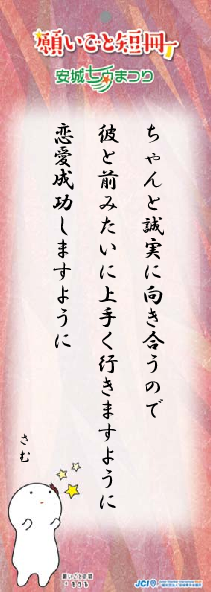 願いごと短冊
安城七夕まつり
ちゃんと誠実に向き合うので
彼と前みたいに上手く行きますように
恋愛成功しますように
さむ
JCI